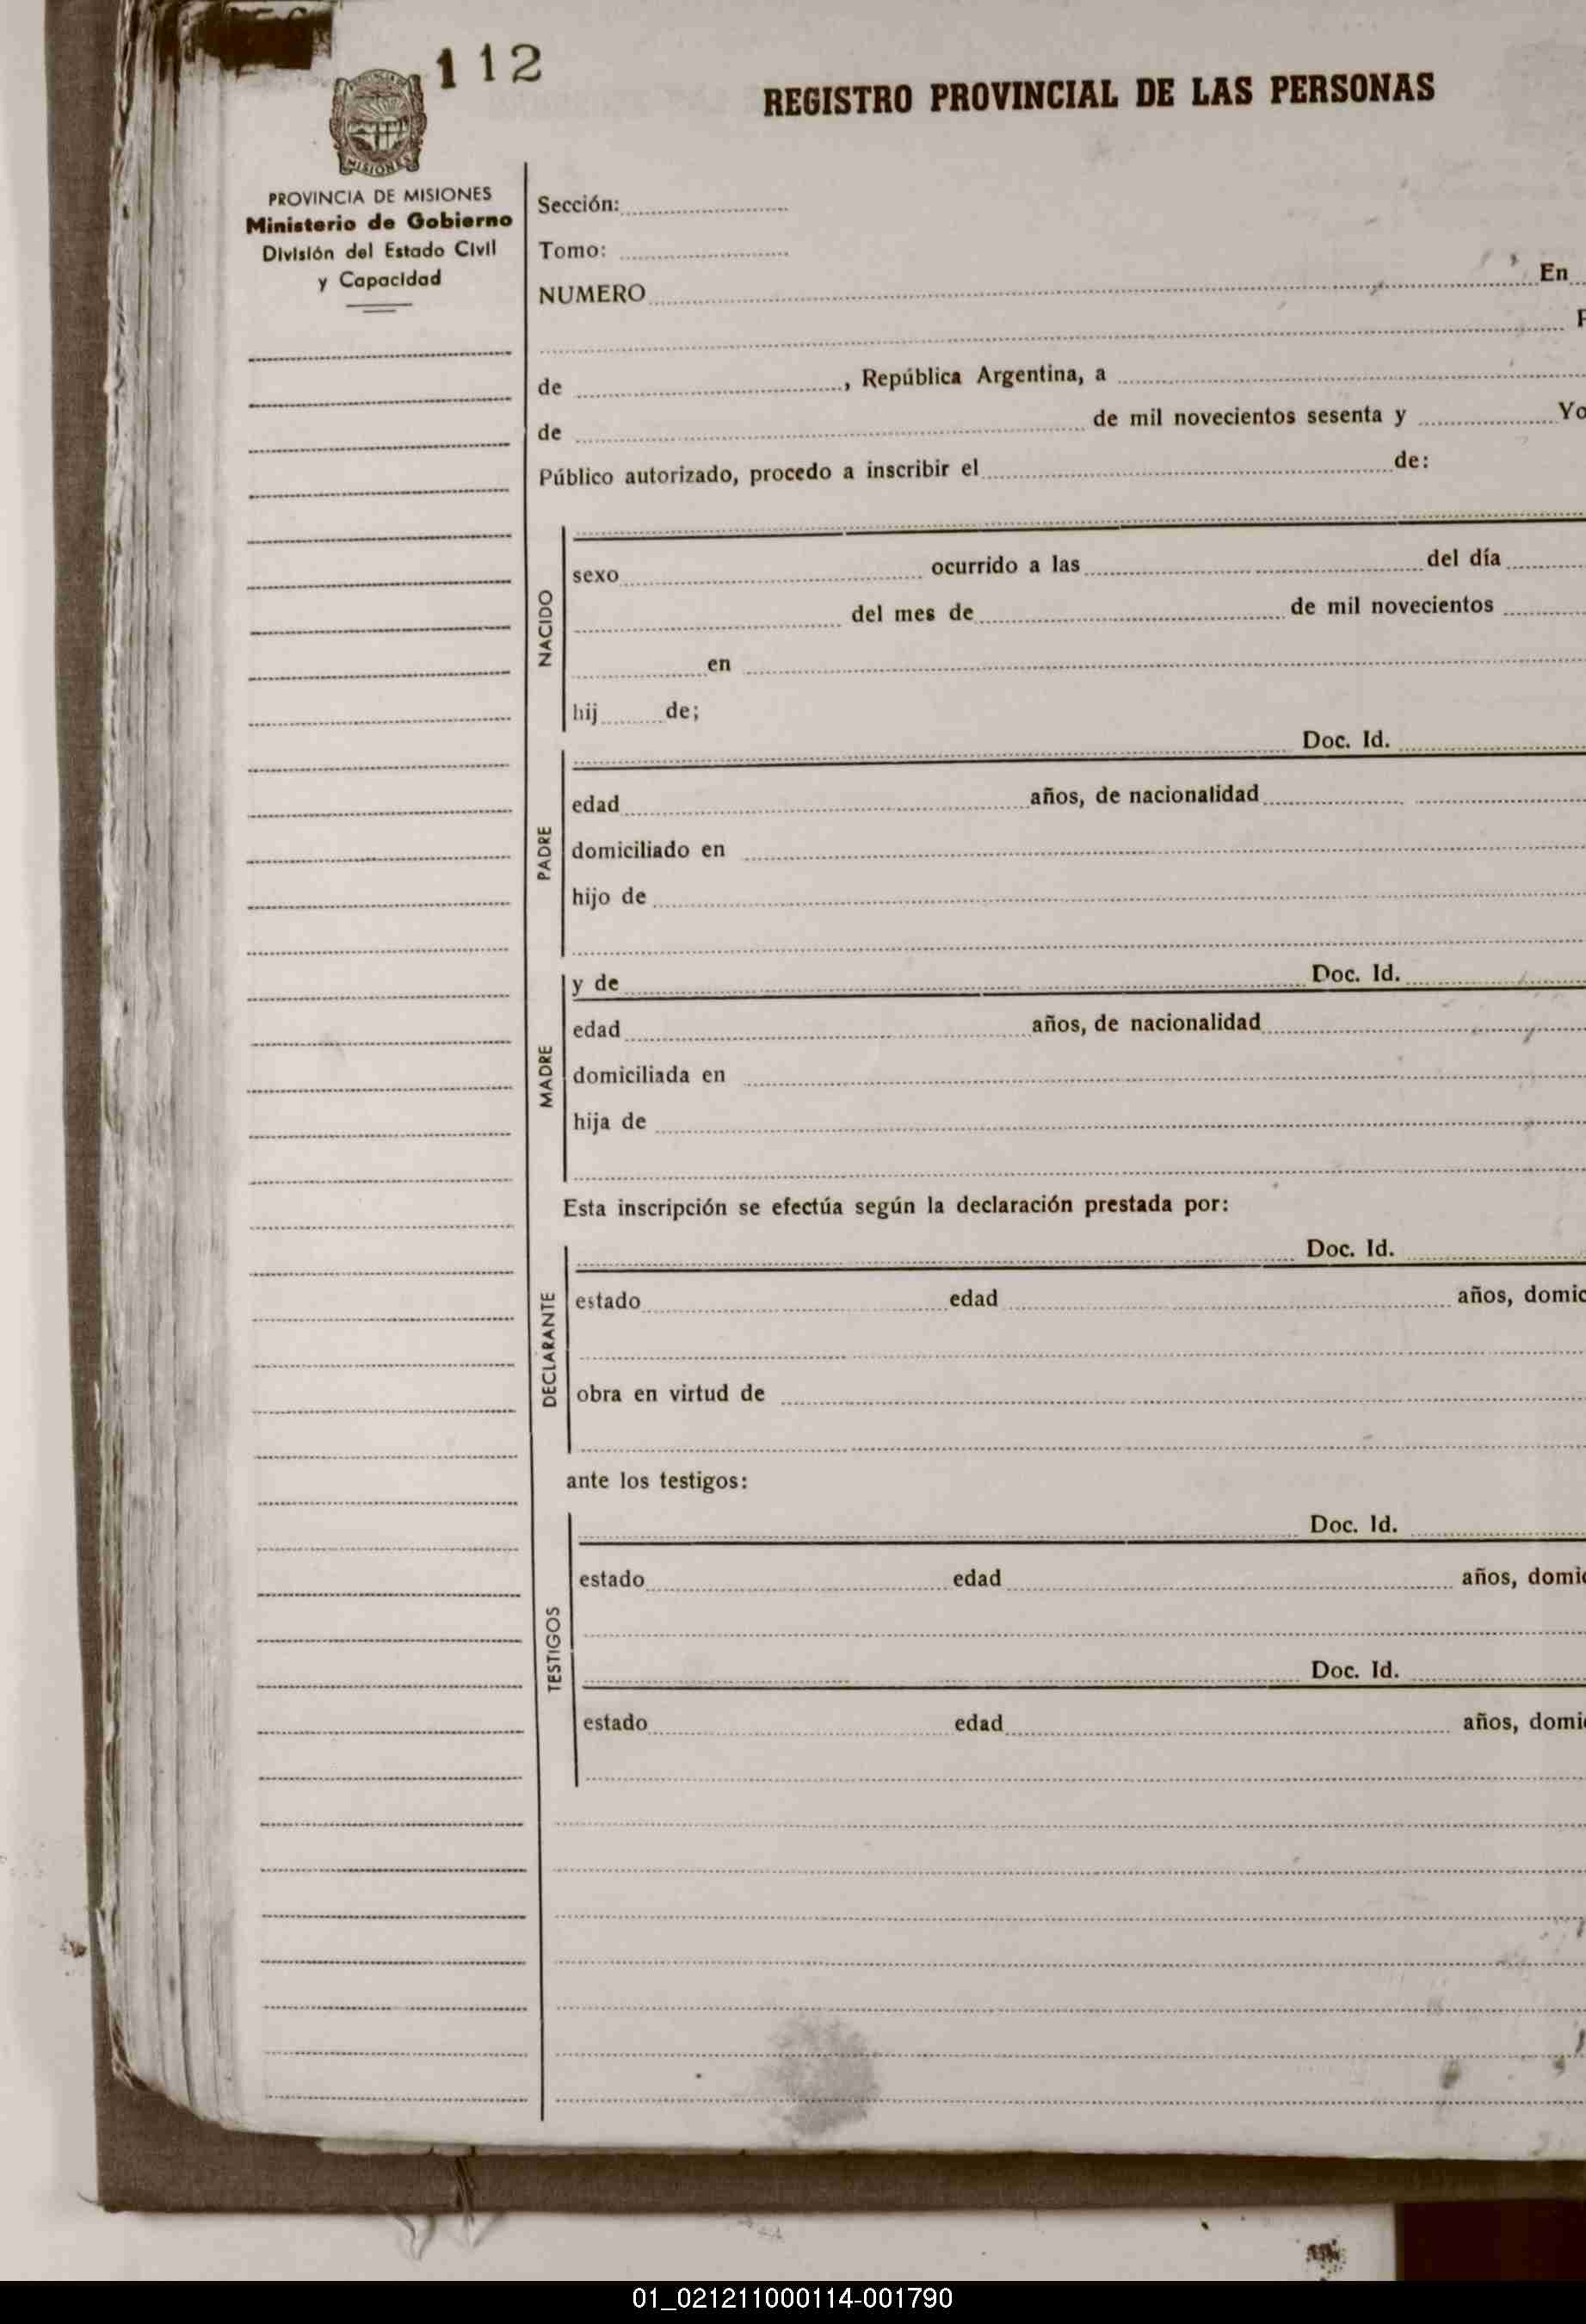 112
MISIONES
REGISTRO PROVINCIAL DE LAS PERSONAS
PROVINCIA DE MISIONES
Ministerio de Gobierno
División del Estado Civil
y Capacidad
Sección:
Tomo:
NUMERO En
de , República Argentina, a
de de mil novecientos sesenta y Yo
Público autorizado, procedo a inscribir el de:
NACIDO
sexo ocurrido a las del día
del mes de de mil novecientos
en
hij de;
PADRE
Doc. Id.
edad años, de nacionalidad
domiciliado en
hijo de
MADRE
y de Doc. Id.
edad años, de nacionalidad
domiciliada en
hija de
Esta inscripción se efectúa según la declaración prestada por:
DECLARANTE
Doc. Id.
estado edad años, domic
obra en virtud de
ante los testigos:
TESTIGOS
Doc. Id.
estado edad años, domic
Doc. Id.
estado edad años, domic
01_021211000114-001790